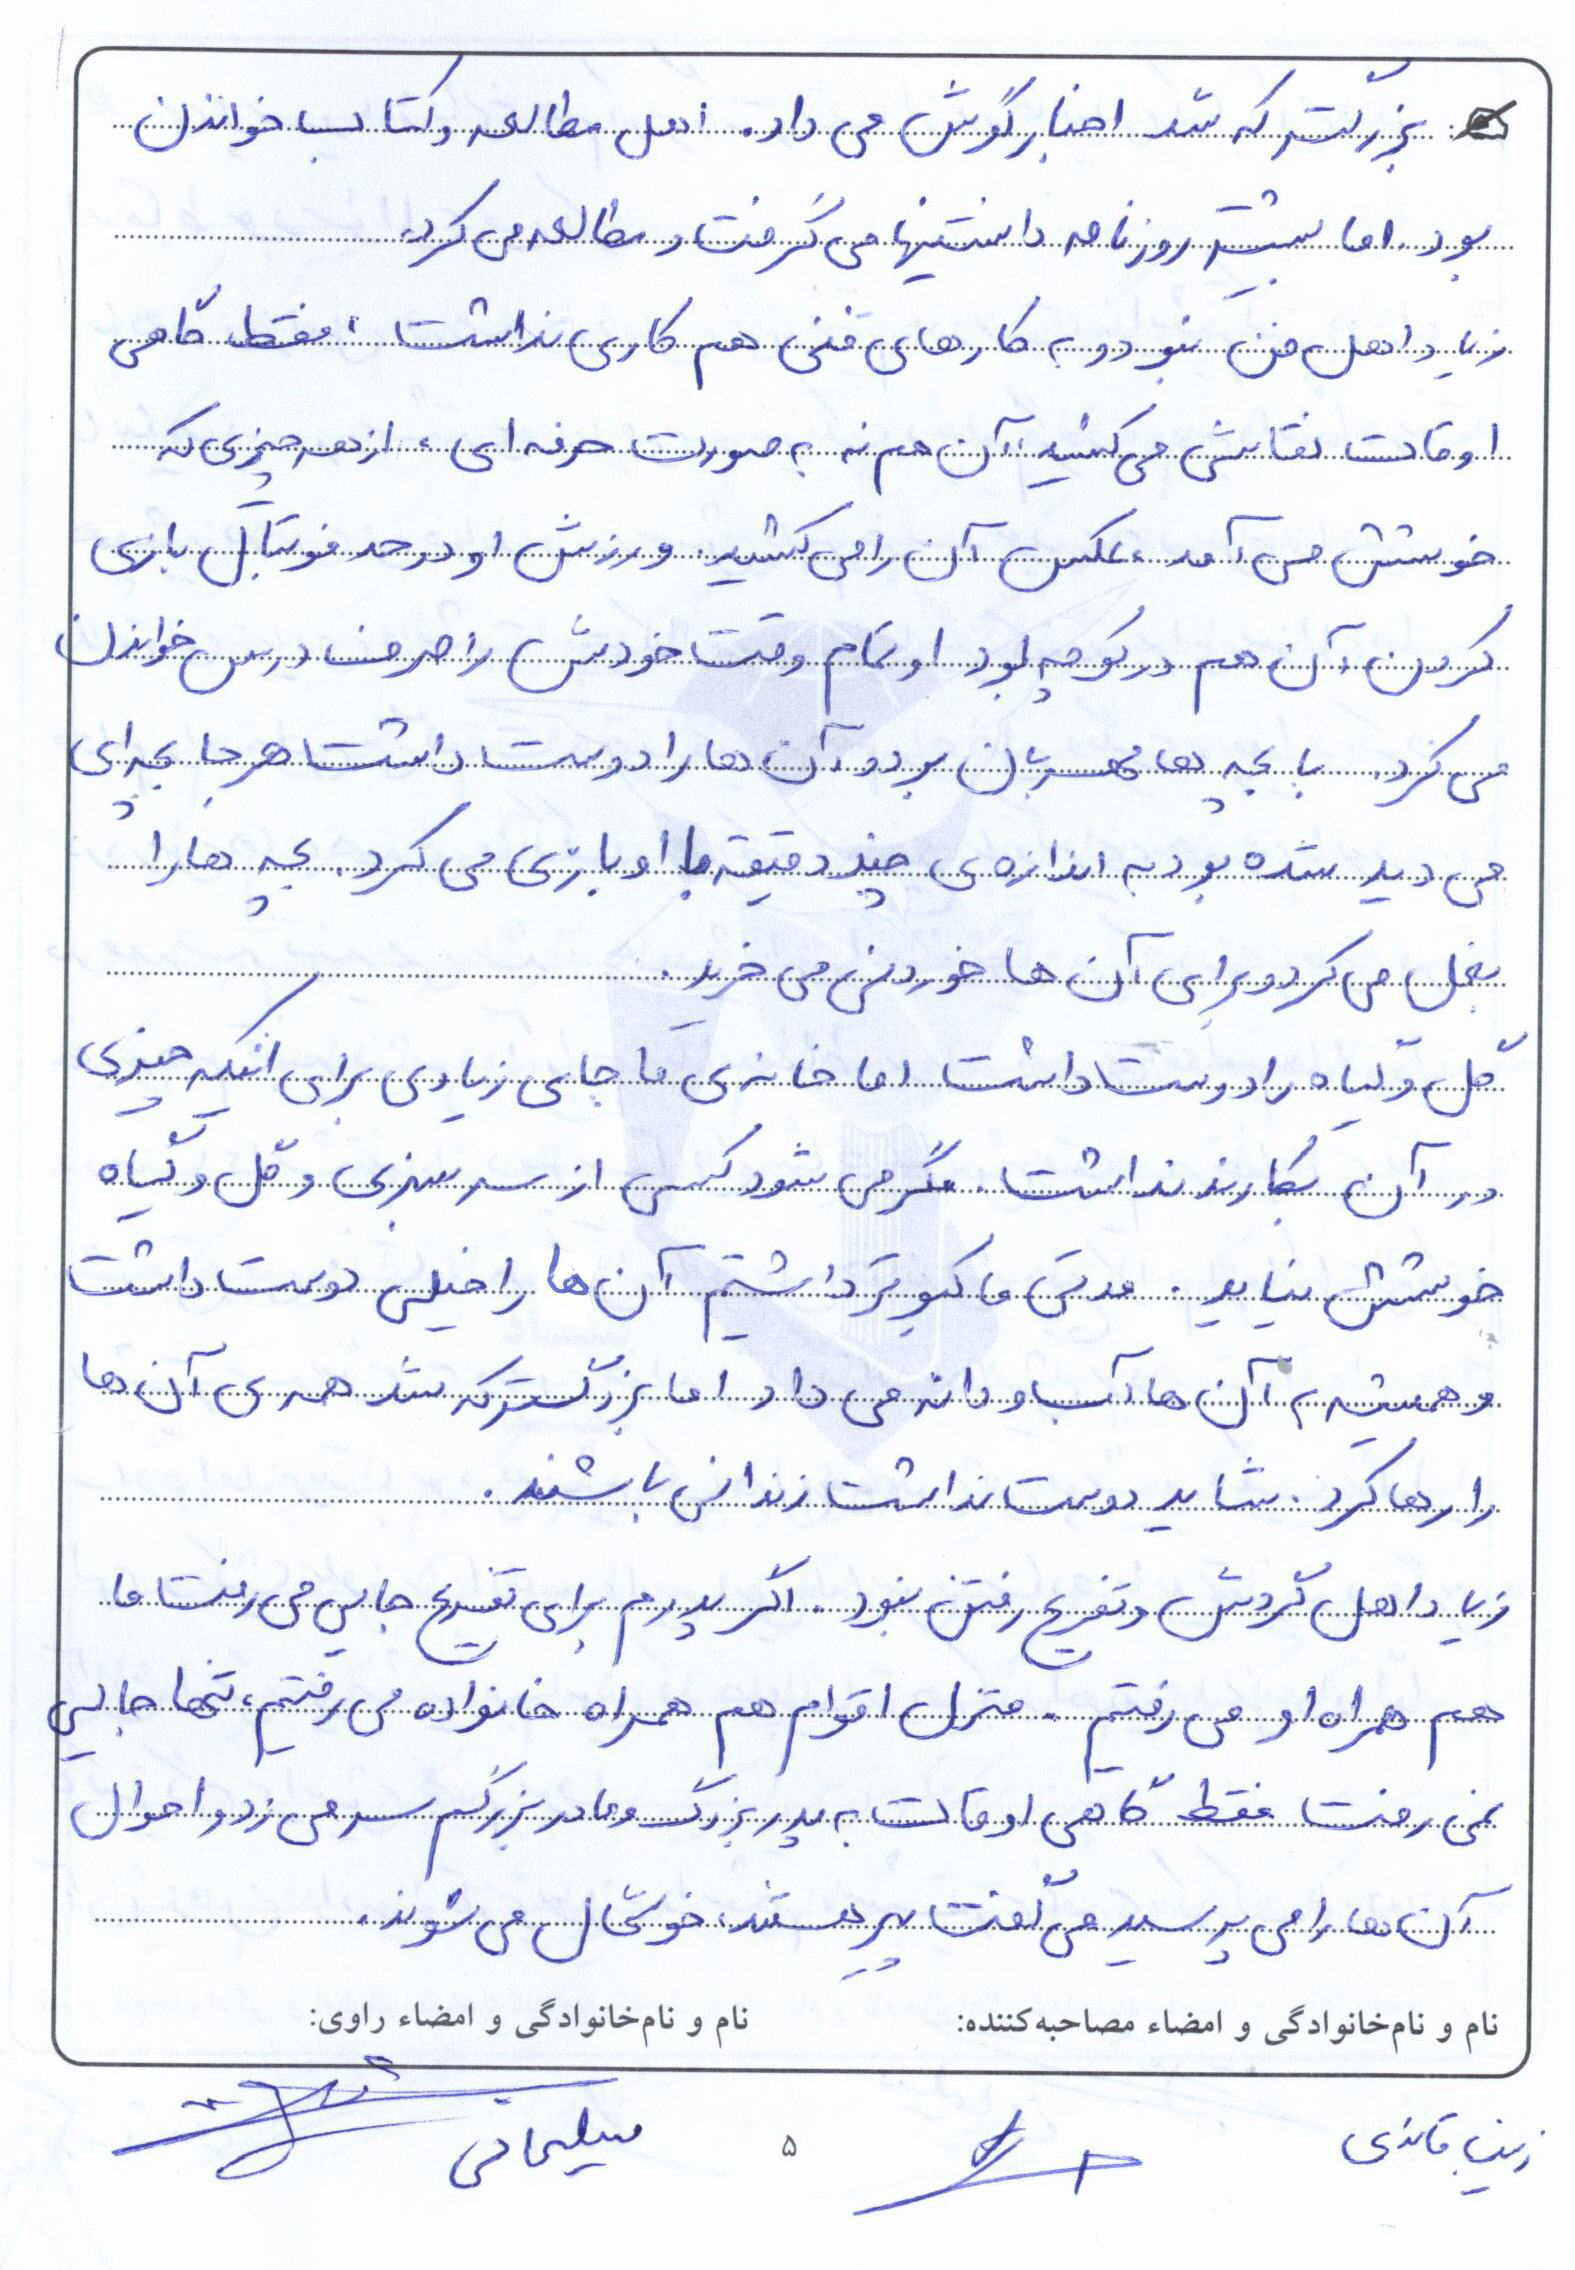 بزرگتر که شد اخبار گوش می داد. اهل مطالعه و کتاب خواندن
بود. اما بیشتر روزنامه دانستنیها می گرفت و مطالعه می کرد.
زیاد اهل فن نبود و به کارهای فنی هم کاری نداشت؛ فقط گاهی
اوقات نقاشی می کشید، آن هم نه به صورت حرفه ای، از هر چیزی که
خوشش می آمد، عکس آن را می کشید. ورزش او در حد فوتبال بازی
کردن، آن هم در کوچه بود. او تمام وقت خودش را صرف درس خواندن
می کرد. با بچه ها مهربان بود و آن ها را دوست داشت هر جا بچه ای
می دید شده بود به اندازه ی چند دقیقه با او بازی می کرد. بچه ها را
بغل می کرد و برای آن ها خوردنی می خرید.
گل و گیاه را دوست داشت اما خانه ی ما جای زیادی برای اینکه چیزی
در آن بکارند نداشت. مگر می شود کسی از سرسبزی و گل و گیاه
خوشش نیاید. مدتی ما کبوتر داشتیم آن ها را خیلی دوست داشت
و همیشه به آن ها آب و دانه می داد اما بزرگتر که شد همه ی آن ها
را رها کرد. شاید دوست نداشت زندانی باشند.
زیاد اهل گردش و تفریح رفتن نبود. اگر پدرم برای تفریح جایی می رفت ما
هم همراه او می رفتیم. منزل اقوام هم همراه خانواده می رفتیم، تنها جایی
نمی رفت فقط گاهی اوقات به پدر بزرگ و مادر بزرگم سر می زد و احوال
آن ها را می پرسید می گفت پیر هستند، خوشحال می شوند.
نام و نام‌خانوادگی و امضاء مصاحبه‌کننده: نام و نام‌خانوادگی و امضاء راوی:
زینب قائدی ۵ سلیمانی